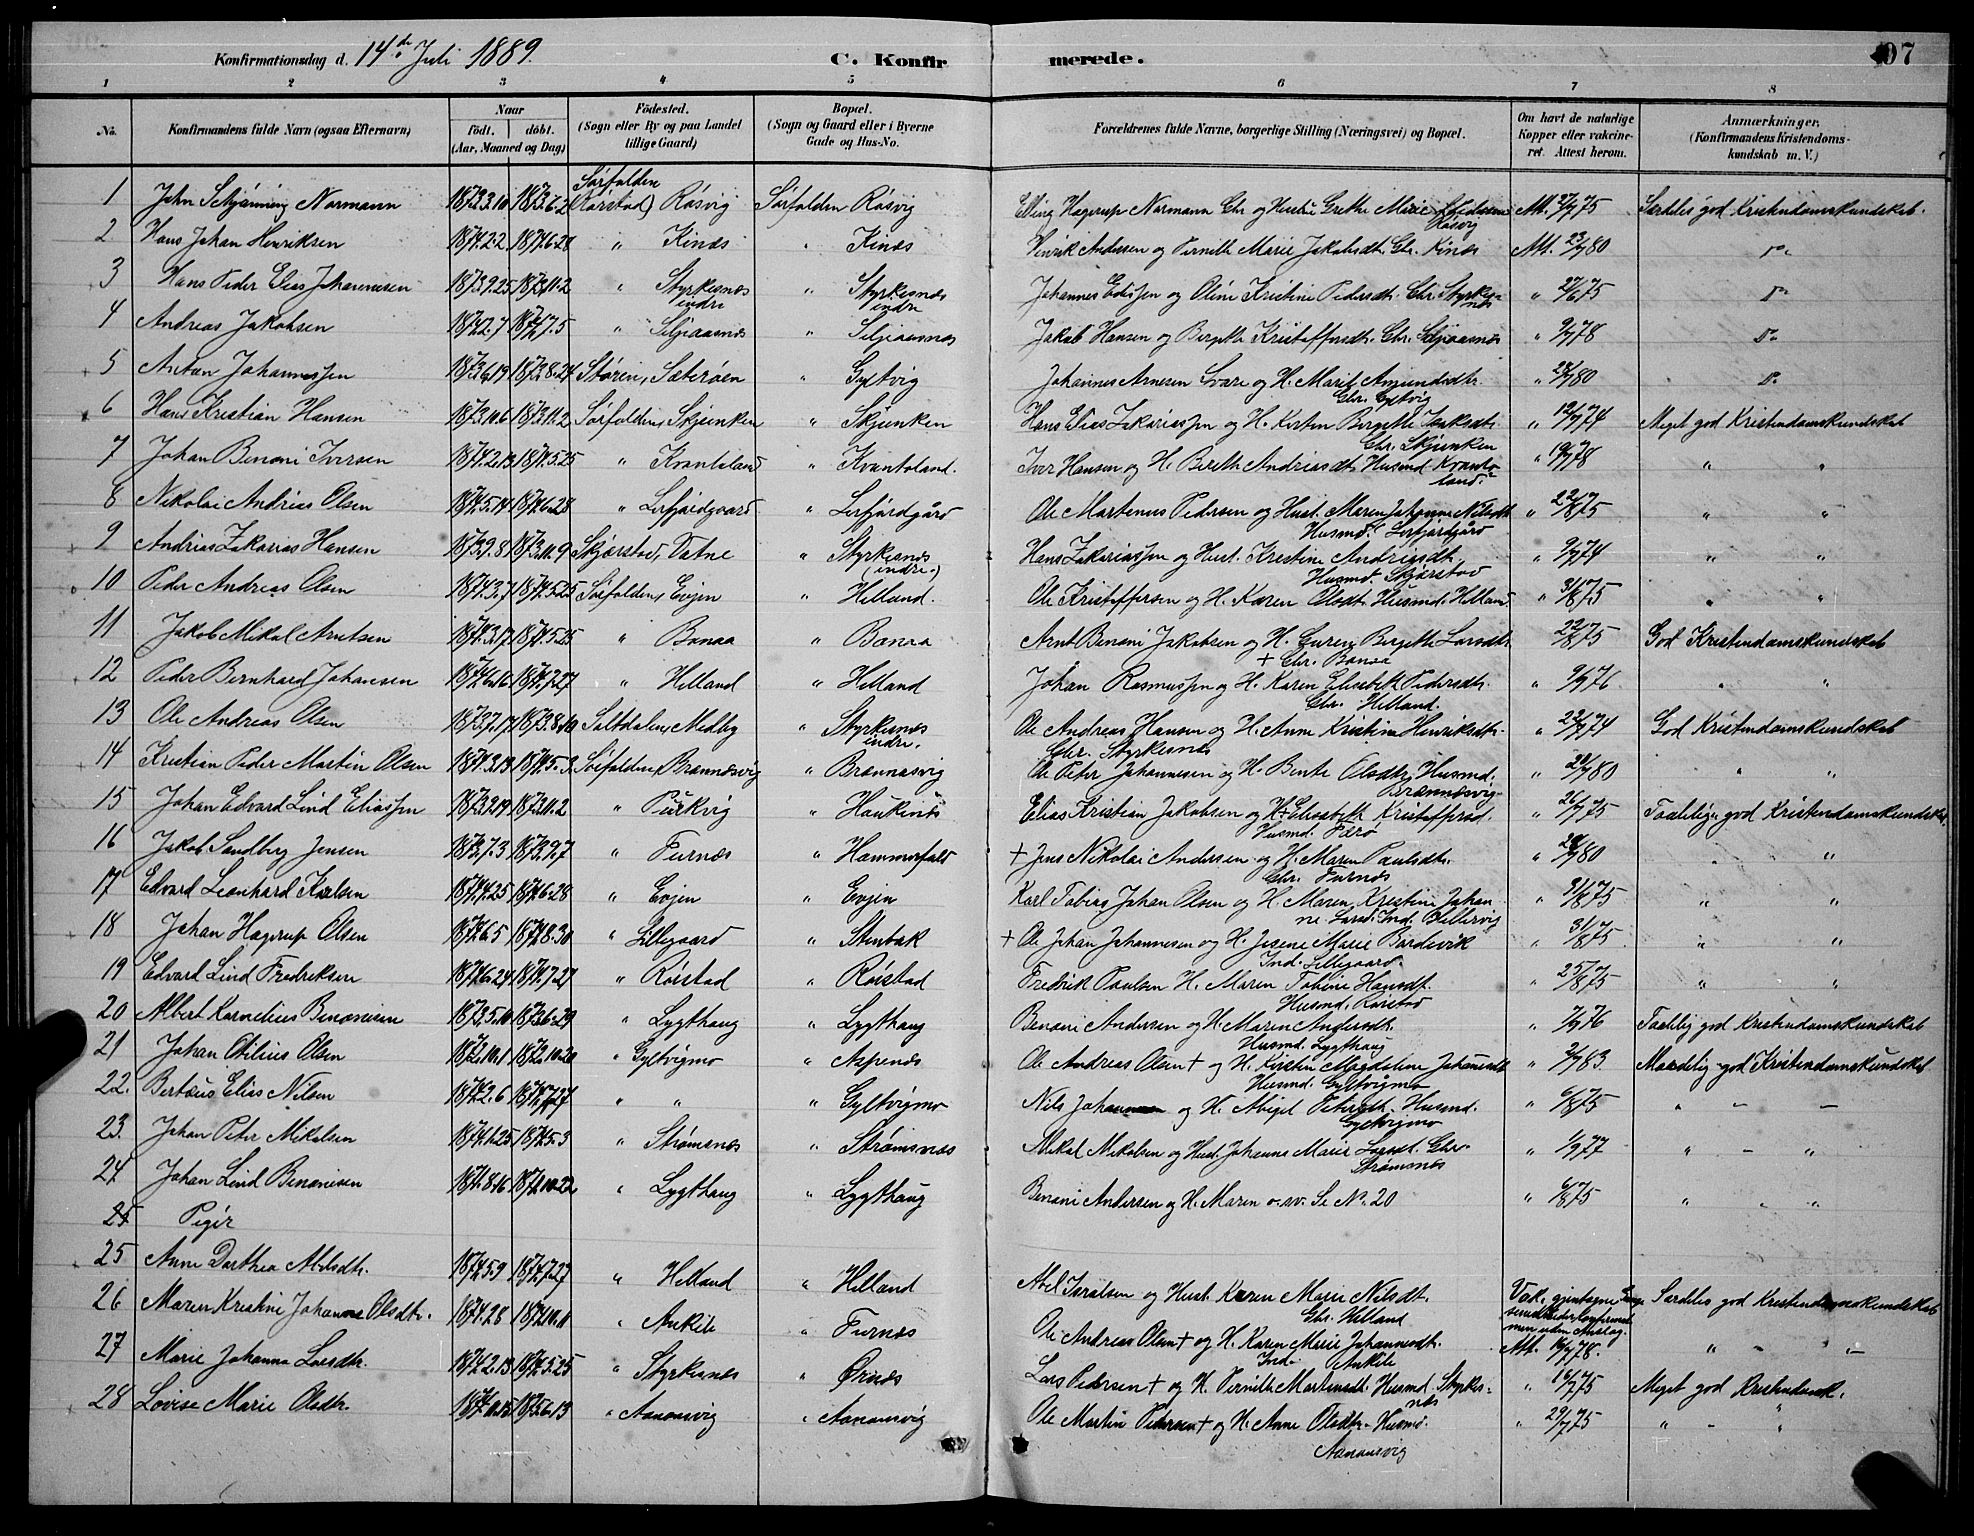 Konfirmationsdag d. 14de Juli 1889.
C. Konfirmerede.
07
1 2 3 4 5 6 7 8
No.
Konfirmandens fulde Navn (ogsaa Efternavn)
Naar
födt. döbt.
(Aar, Maaned og Dag)
Födested.
(Sogn eller By og paa Landet
tillige Gaard)
Bopæl.
(Sogn og Gaard eller i Byerne
Gade og Hus-No.
Forældrenes fulde Navne, borgerlige Stilling (Næringsvei) og Bopæl.
Om havt de naturlige
Kopper eller vakcine-
ret. Attest herom.
Anmærkninger.
(Konfirmandens Kristendoms-
kundskab m. V.)
1 John Schjønning Normann 1873.3.10 1873.6.2 Sørfolden (Rørstad) Røsvig Sørfolden Røsvig Elling Hagerup Normann Gbr og Hustru Grethe Marie Røsvig Att. 27/7 75 Særdeles god Kristendomskundskab.
2 Hans Johan Henriksen 1874.2.2 1874.6.28 " Kinæs " Kinæs Henrik Andersen og Pernille Marie Jakobsdt. Gbr. Kinæs Att. 23/7 80 Do
3 Hans Peder Elias Johannesen 1873.9.25 1873.11.2 " Styrkesnæs indre " Styrkesnæs indre Johannes Edisen og Oline Kristine Pedersdt. Gbr. Styrkesnæs " 27/6 75 Do
4 Andreas Jakobsen 1874.2.7 1874.7.5 " Seljeaasnæs " Seljeaasnæs Jakob Hansen og Bergithe Kristoffersdt. Gbr. Seljeaasnæs " 9/7 78 Do
5 Anton Johannessen 1873.6.19 1873.8.24 Støren, Sæterøen " Gyltvig Johannes Arnesen Svare og H. Marit Amundsdtr. Gbr. Gyltvig " 28/7 80 Do
6 Hans Kristian Hansen 1873.10.6 1873.11.2 Sørfolden, Skjunken " Skjunken Hans Elias Zakariassen og H. Kirsten Bergithe Isaksdt. Gbr. Skjunken " 12/7 74 Meget god Kristendomskundskab
7 Johan Benoni Iversen 1874.2.13 1874.5.25 " Kvantoland " Kvantoland. Iver Hansen og H. Bereth Andreasdt. Husmd. Kvantoland. " 19/7 78 " "
8 Nikolai Andreas Olsen 1874.5.14 1874.6.28 " Lerfjordgaard " Lerfjordgård Ole Martenus Pedersen og Hust. Maren Johanna Nilsdt. Husmd. Lerfjordgård " 22/8 75 " "
9 Andreas Zakarias Hansen 1873.9.8 1873.11.9 Skjærstad, Tatne " Styrkesnæs (indre.) Hans Zakariassen og Hust. Kristine Andreasdt. Husmd. Skjærstad " 9/7 74 " "
10 Peder Andreas Olsen 1874.3.7 1874.5.25 Sørfolden, Evjen " Helland. Ole Kristoffersen og H. Karen Olsdt. Husmd. Helland. " 31/8 75 " "
11 Jakob Mikal Arntsen 1874.3.17 1874.5.25 " Bonaa " Bonaa Arnt Benoni Jakobsen og H. Guren Bergithe Larsdt. + Gbr. Bonaa " 22/8 75 God Kristendomskundskab
12 Peder Bernhard Johansen 1874.6.16 1874.7.27 " Helland " Helland Johan Rasmussen og H. Karen Elisabeth Pedersdt. Gbr. Helland. " 9/9 76 " "
13 Ole Andreas Olsen 1873.7.17 1873.8.10 Saltdalen, Medby " Styrkesnæs indre. Ole Andreas Hansen og H. Anne Kristine Henriksdt. Gbr. Styrkesnæs " 22/7 74 God Kristendomskundskab
14 Kristian Peder Martin Olsen 1874.3.13 1874.5.3 Sørfolden, Brannæsvig " Brannæsvig Ole Peter Johannesen og H. Bente Olsdtr. Husmd. Brannæsvig " 20/7 80 " "
15 Johan Edvard Lind Eliassen 1873.2.19 1873.11.2 " " Elias Kristian Jakobsen og H. Elisabeth Kristoffersd. Husmd. Færø " 26/7 75 Taalelig god Kristendomskundskab.
16 Jakob Sandberg Jensen 1873.7.3 1873.9.7 " Furnæs " Hammerfald + Jens Nikolai Andersen og H. Maren Paulsdtr. Gbr. Furnæs " 28/7 80 " "
17 Edvard Leonhard Karlsen 1874.4.25 1874.6.28 " Evjen " Evjen Karl Tobias Johan Olsen og H. Maren Kristine Johanne Larsd. Ind. " 31/8 75 " "
18 Johan Hagerup Olsen 1874.6.5 1874.8.30 " Lillegaard " Stenbak + Ole Johan Johannesen og H. Jesene Marie Bardevik Ind. Lillegaard. " 31/8 75 " "
19 Edvard Lind Fredriksen 1874.6.24 1874.7.27 " Rørstad " Rørstad Fredrik Paulsen H. Maren Tobine Hansdt. Husmd. Rørstad " 25/8 75 " "
20 Albert Kornelius Benonisen 1873.5.10 1873.6.29 " Lygthaug " Lygthaug Benoni Andersen og H. Maren Andersdtr. Husmd. Lygthaug " 7/9 76 Taalelig god Kristendomskundskab
21 Johan Otilius Olsen 1872.10.1 1872.10.20 " Gyltvigmo " Aspenæs Ole Andreas Olsen + og H. Kirsten Magdalena Johansdt. Husmd. Gyltvigmo " 2/7 83. Maadelig god Kristendomskundskab
22. Bertæus Elias Nilsen 1874.2.6 1874.7.27 " " " Gyltvigmo Nils Johannesen og H. Abigel Petersdt. Husmd. Gyltvigmo " 6/8 75 " - -
23. Johan Peter Mikalsen 1874.1.25 1874.5.3 " Strømsnæs " Strømsnæs Mikal Mikalsen og Hust. Johanna Marie Larsdt. Gbr. Strømsnæs " 1/9 77 " - "
24 Johan Lind Benonisen 1871.8.16 1871.10.22 " Lygthaug " Lygthaug Benoni Andersen og H. Maren o. sv. Se No. 20 " 6/8 75 " " "
25 Piger
25 Anne Dorthea Abelsdtr. 1874.5.9 1874.7.27 " Helland " Helland Abel Isralsen og Hust. Karen Marie Nilsdt. Gbr. Helland Vak. gjentagne Gange men uden Anslag. Særdeles god Kristendomskundskab
26 Maren Kristine Johanna Olsdtr. 1874.1.28 1874.10.11 " Ankile " Furnæs Ole Andreas Olsen + og H. Karen Marie Johannesdt. Ind. Ankile Att. 16/7 78. " " "
27 Marie Johanna Larsdtr. 1874.2.13 1874.5.25 " Styrkesnæs " Ørnæs Lars Pedersen + og H. Pernille Martinsdt. Husmd. Styrkesnæs " 16/7 75 Meget god Kristendomsk.
28 Lovise Marie Olsdtr. 1874.10.15 1875.6.13 " Aanonsvig " Aanonsvig Ole Martin Pedersen + og H. Anne Olsdtr. Husmd. Aanonsvig " 29/7 75 " - "